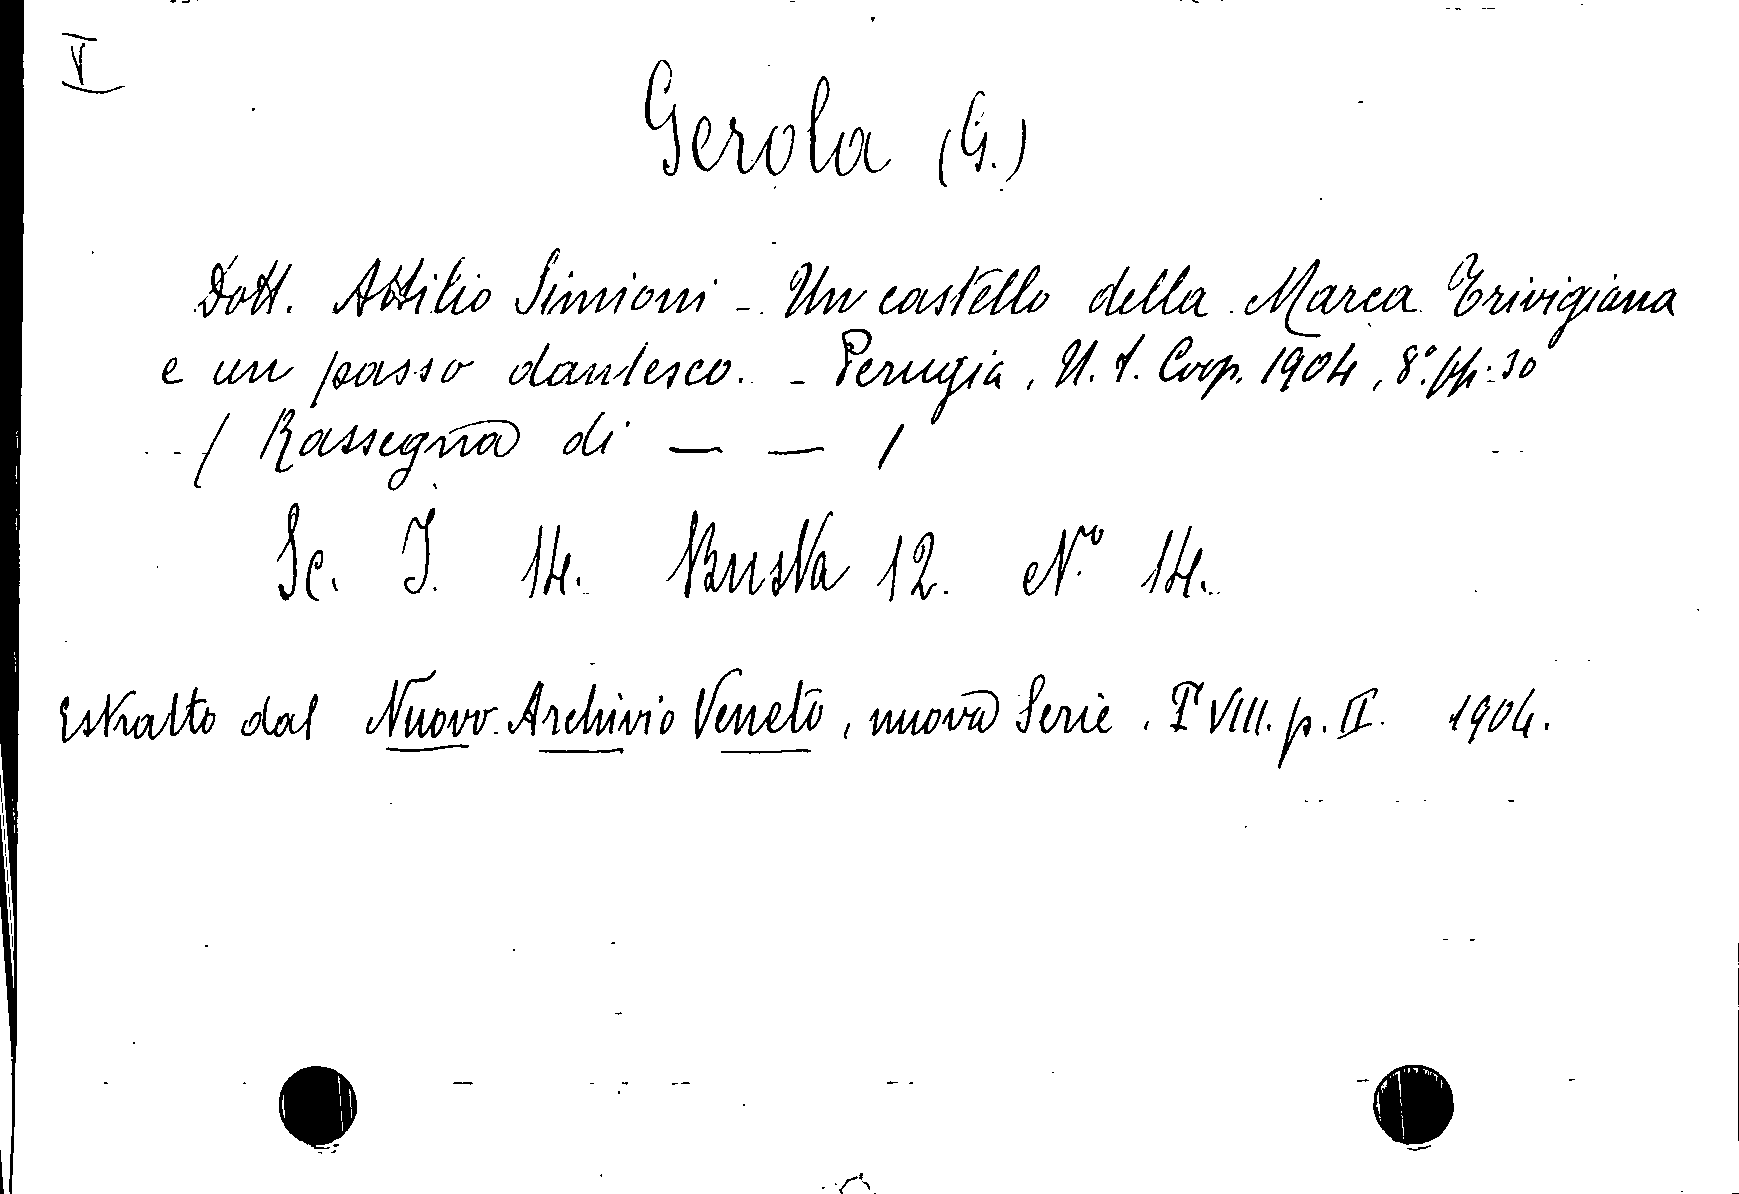 V
Gerola (G.)
Dott. Attilio Simioni - Un castello della Marca Trivigiana
e un passo dantesco. - Perugia, U. t. Coop. 1904, 8.° pp. 30
/ Rassegna di — — /
Sc. I. 14. Busta 12. N.° 14.
Estratto dal Nuovo Archivio Veneto, nuova Serie. T. VIII. p. II. 1904.